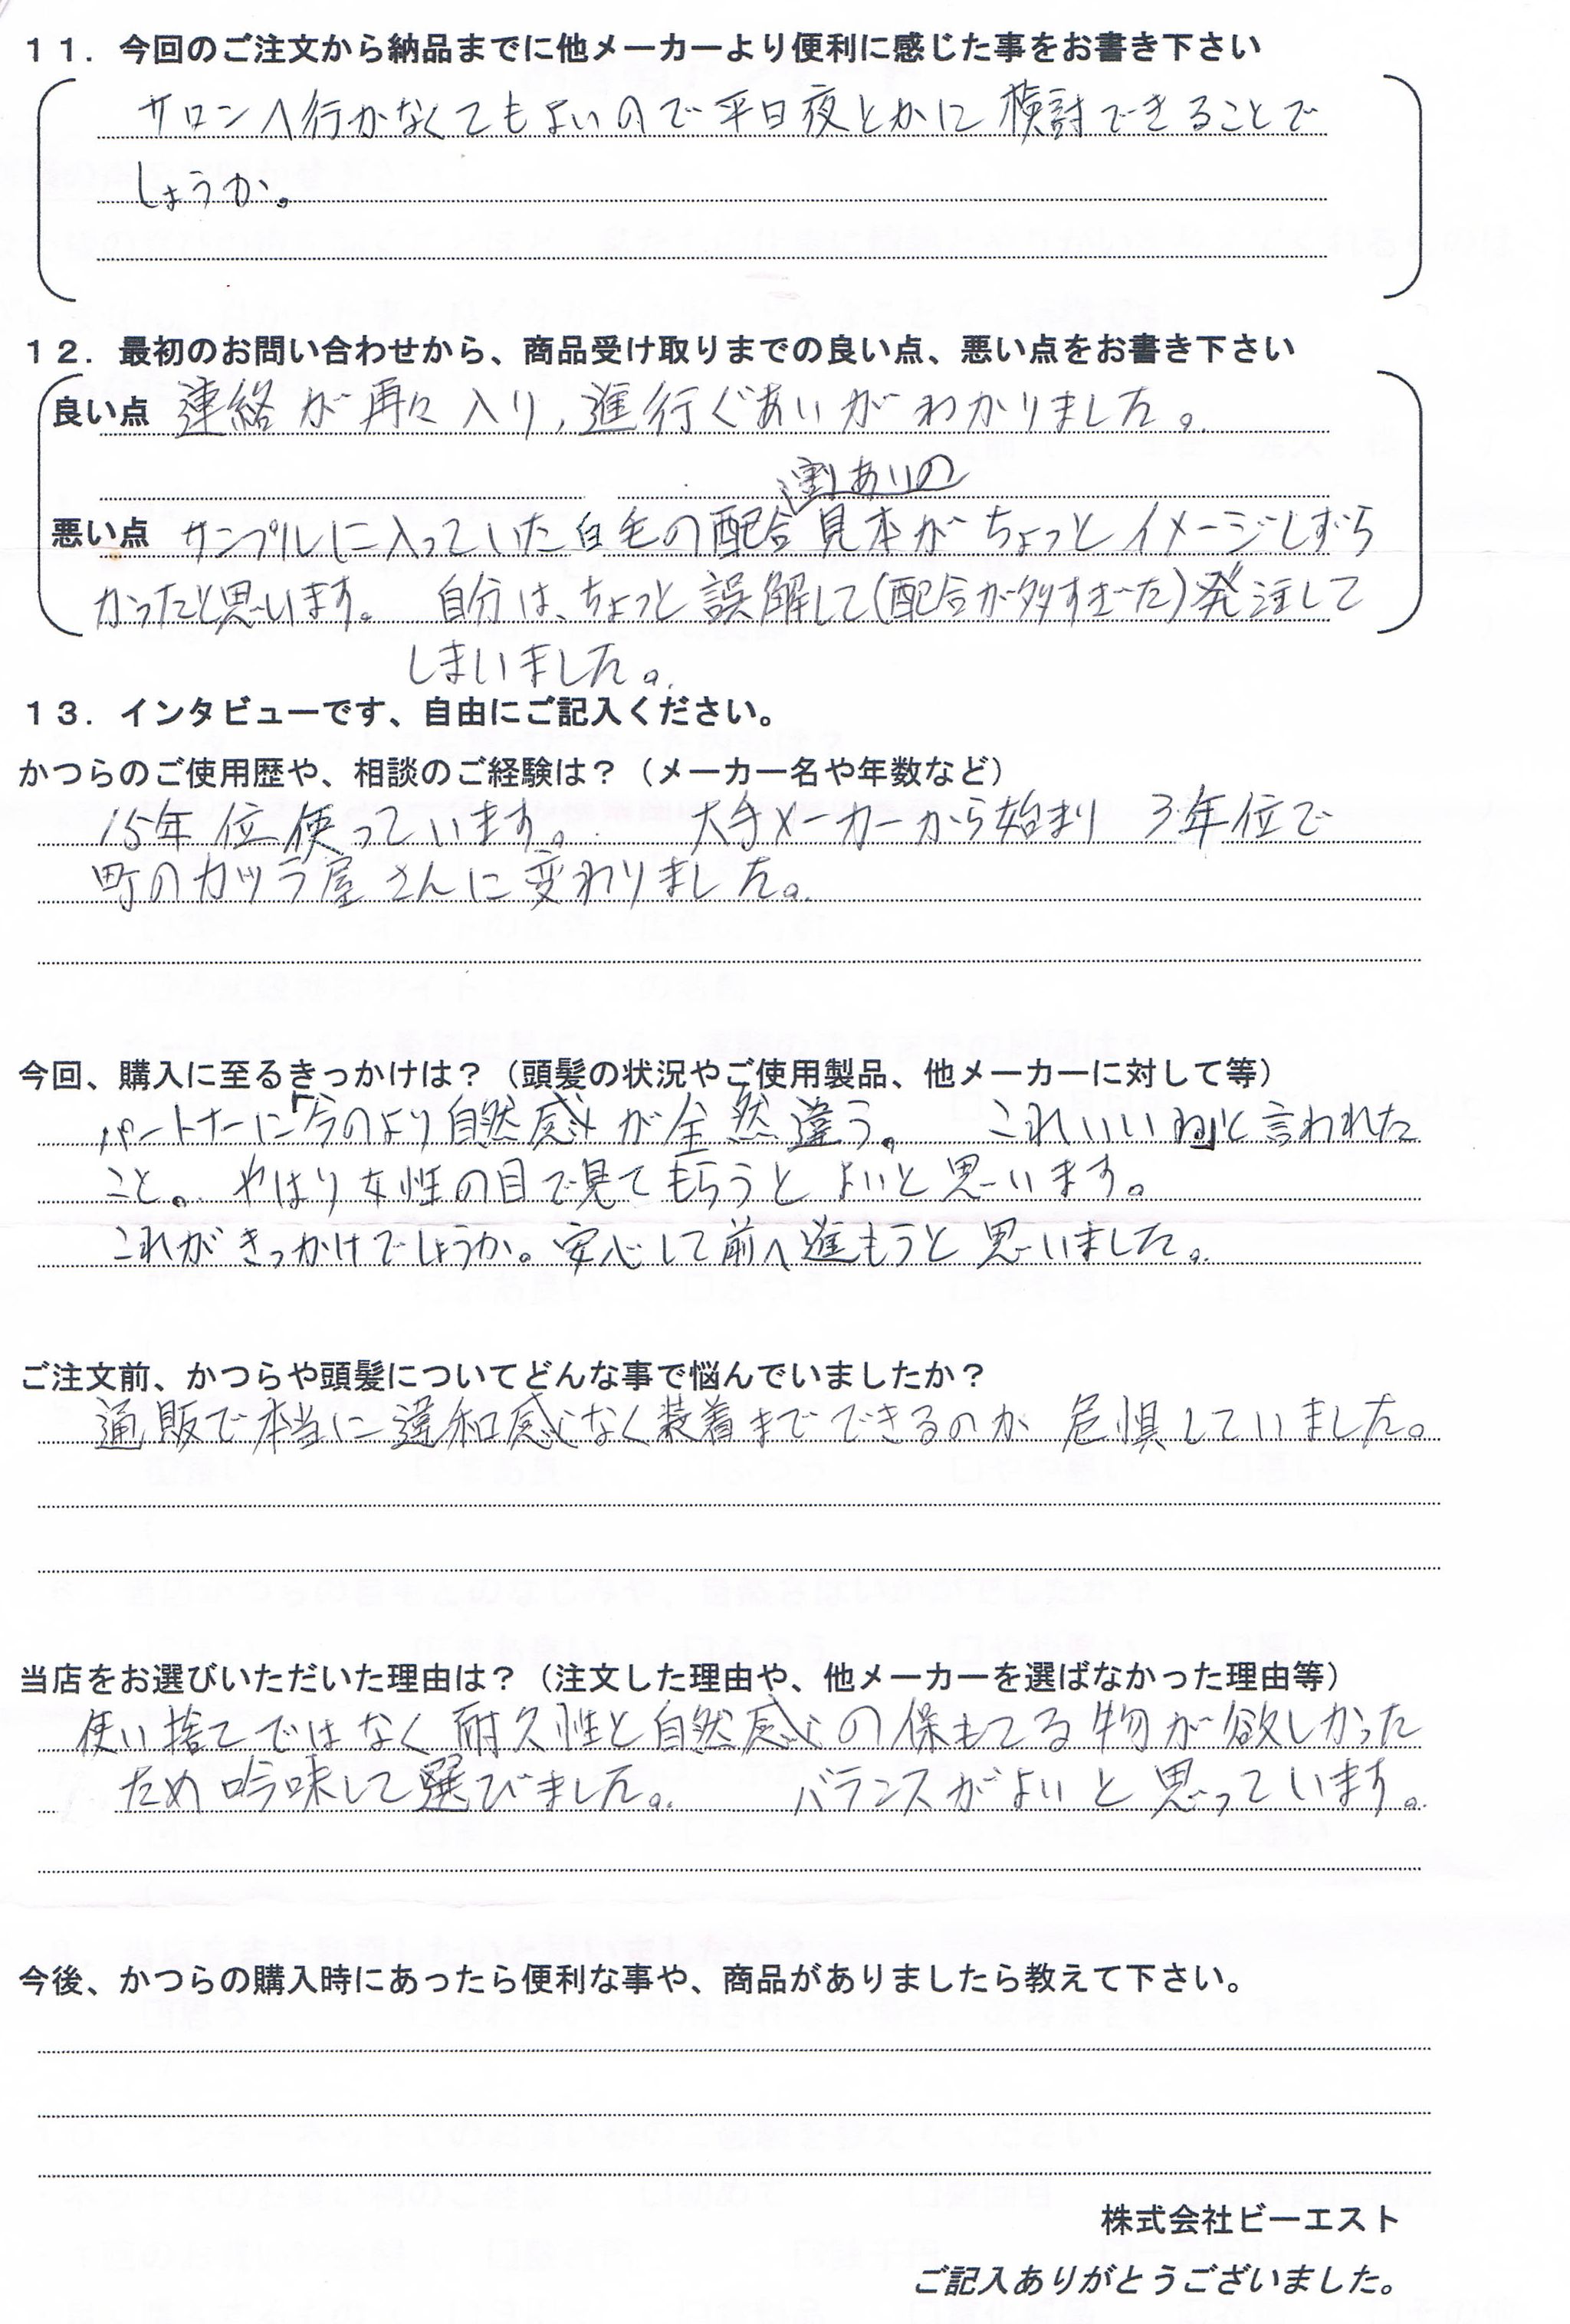 １１．今回のご注文から納品までに他メーカーより便利に感じた事をお書き下さい
サロンへ行かなくてもよいので平日夜とかに検討できることで
しょうか。
１２．最初のお問い合わせから、商品受け取りまでの良い点、悪い点をお書き下さい
良い点 連絡が再々入り、進行ぐあいがわかりました。
割あいの
悪い点 サンプルに入っていた白毛の配合見本がちょっとイメージしずら
かったと思います。 自分は、ちょっと誤解して(配合が多すぎた)発注して
しまいました。
１３．インタビューです、自由にご記入ください。
かつらのご使用歴や、相談のご経験は？（メーカー名や年数など）
15年位使っています。 大手メーカーから始まり 3年位で
町のカツラ屋さんに変わりました。
今回、購入に至るきっかけは？（頭髪の状況やご使用製品、他メーカーに対して等）
パートナーに「今のより自然感が全然違う。 これいいね」と言われた
こと。やはり女性の目で見てもらうとよいと思います。
これがきっかけでしょうか。安心して前へ進もうと思いました。
ご注文前、かつらや頭髪についてどんな事で悩んでいましたか？
通販で本当に違和感なく装着までできるのか 危惧していました。
当店をお選びいただいた理由は？（注文した理由や、他メーカーを選ばなかった理由等）
使い捨てではなく耐久性と自然感の保もてる物が欲しかった
ため吟味して選びました。 バランスがよいと思っています。
今後、かつらの購入時にあったら便利な事や、商品がありましたら教えて下さい。
株式会社ビーエスト
ご記入ありがとうございました。